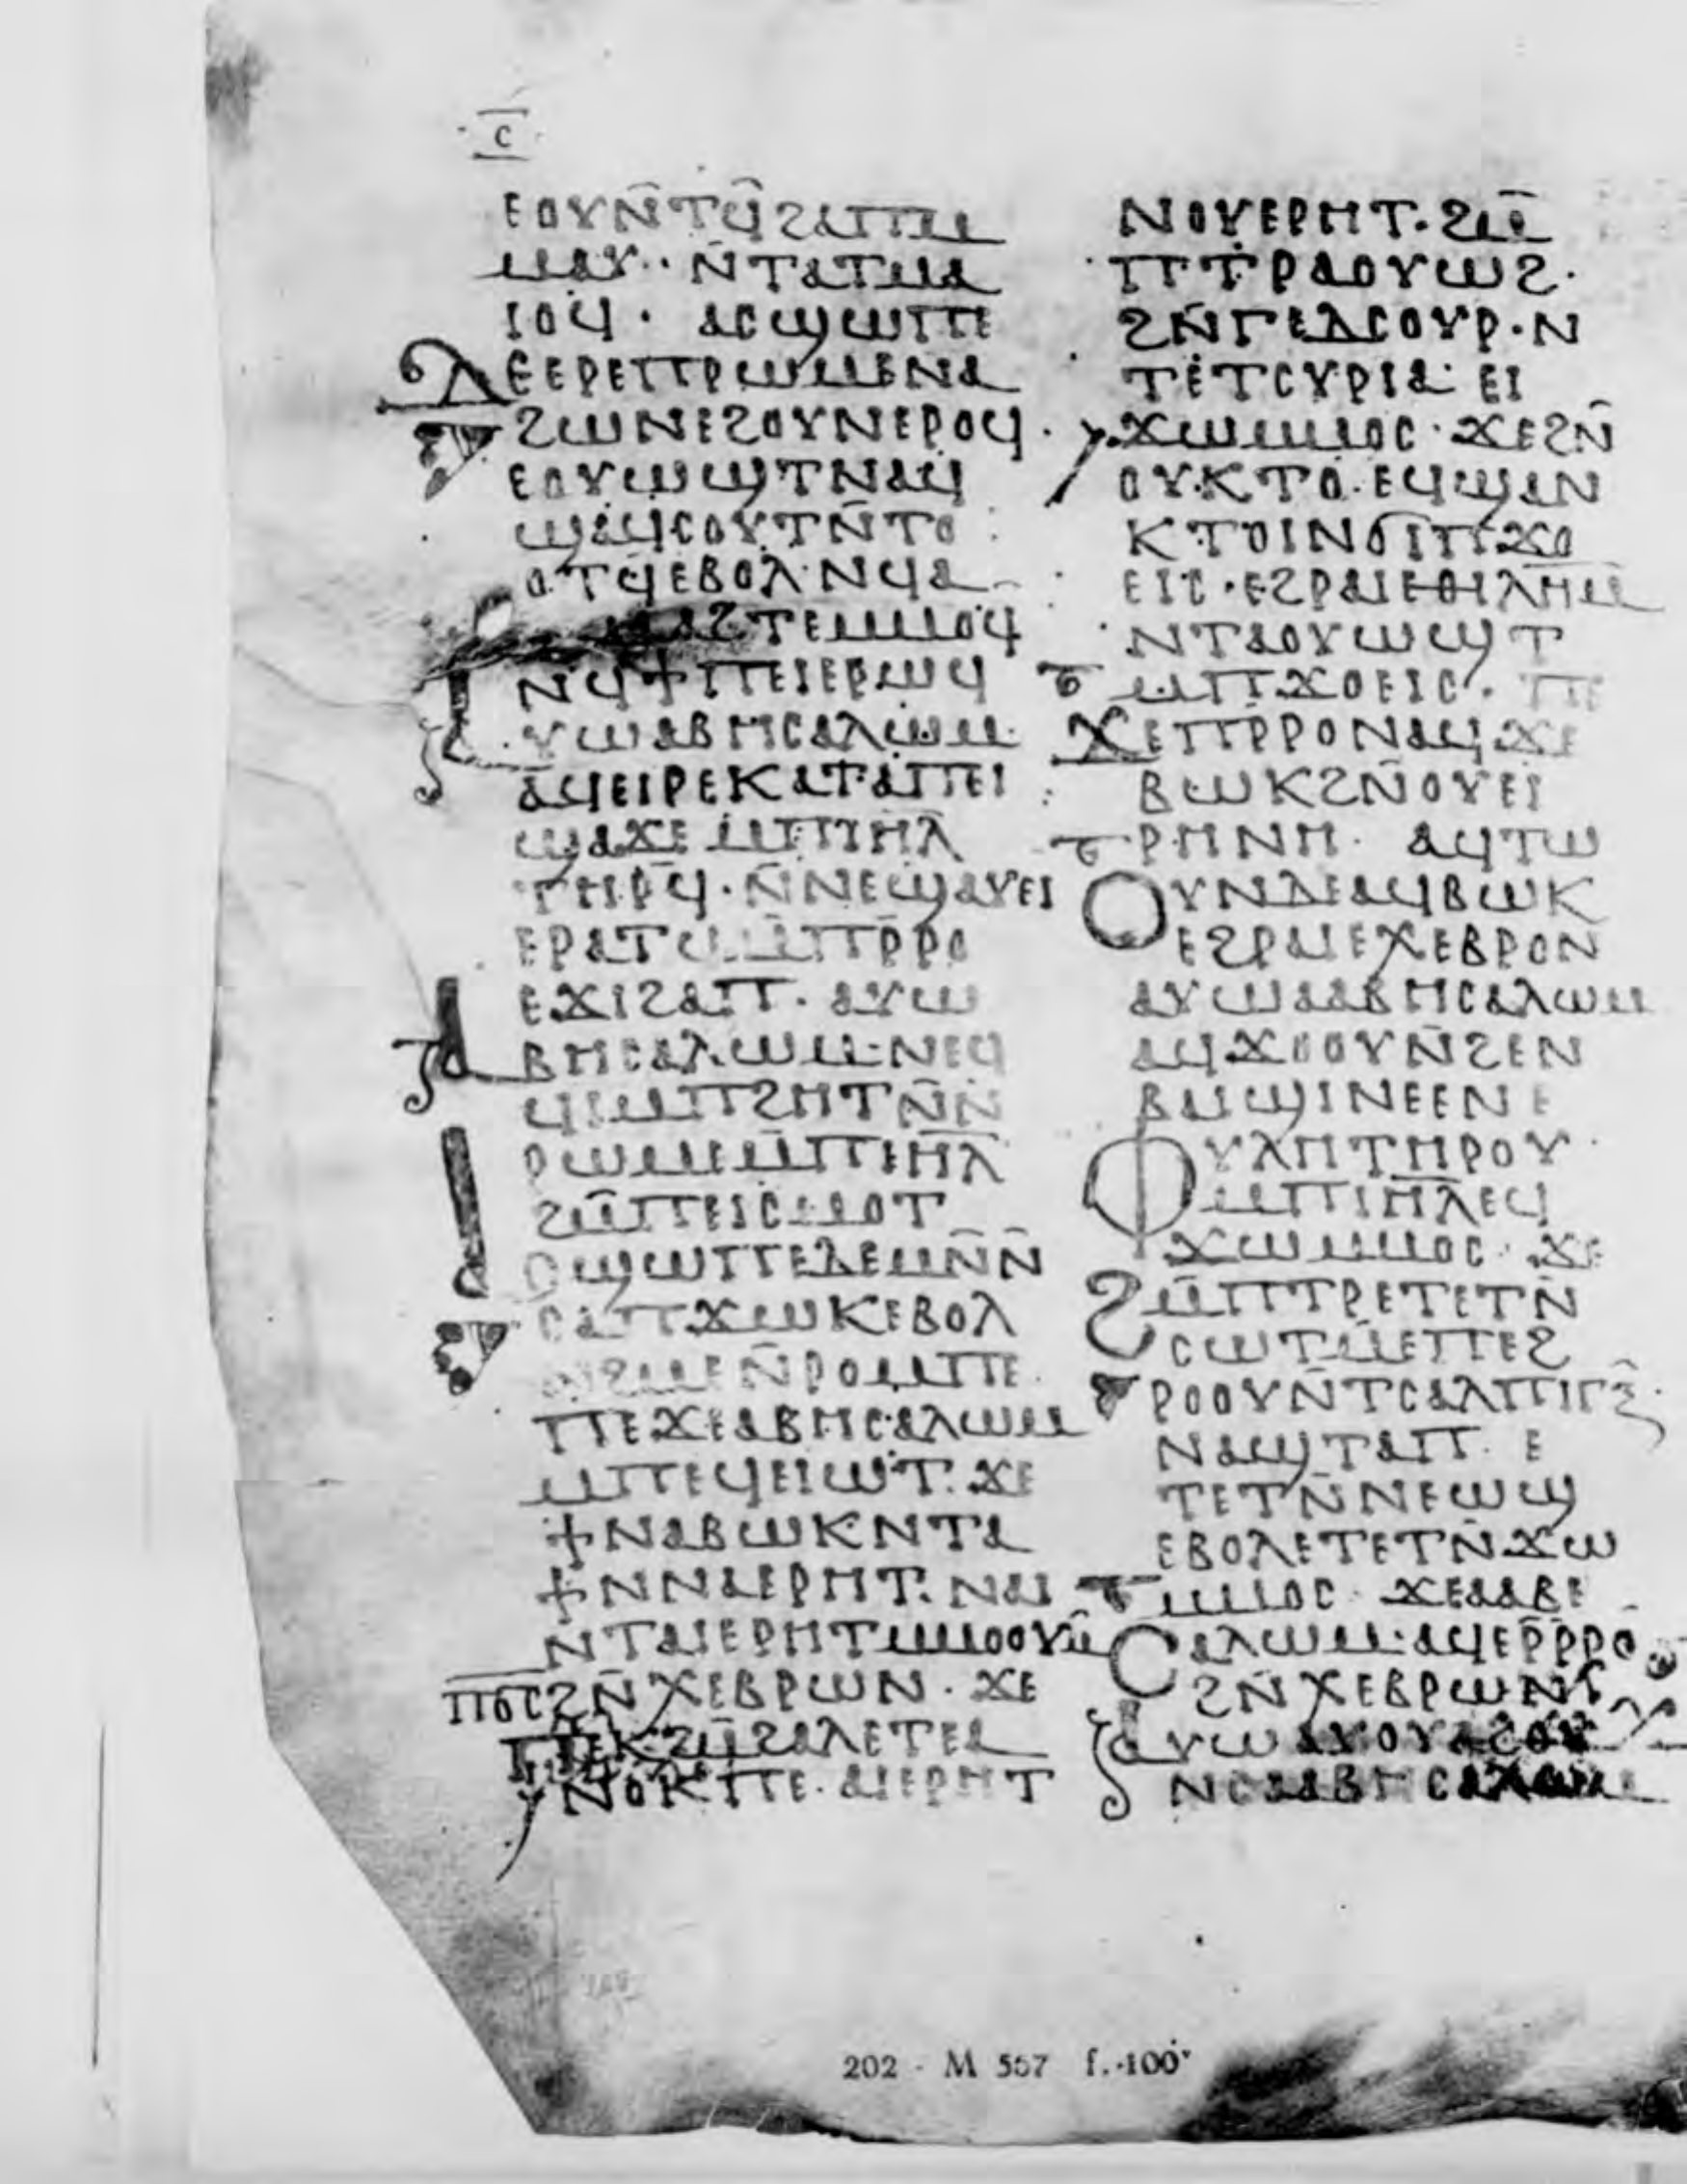 ⲥ̅
ⲉⲟⲩⲛ̄ⲧϥ̄ϩⲁⲡⲙ
ⲙⲁⲩ·· ⲛ̄ⲧⲁⲧⲙⲁ
ⲓⲟϥ · ⲁⲥϣⲱⲡⲉ
ⲇⲉⲉⲣⲉⲡⲣⲱⲙⲉⲛⲁ
ϩⲱⲛⲉϩⲟⲩⲛⲉⲣⲟϥ ·
ⲉⲟⲩⲱϣⲧⲛⲁϥ
ϣⲁϥⲥⲟⲩⲧⲛ̄ⲧⲟ
ⲟⲧϥⲉⲃⲟⲗ·ⲛϥⲁ
ⲙⲁϩⲧⲉⲙⲙⲟϥ
ⲛϥϯⲡⲉⲓⲉⲣⲱϥ
ⲁⲩⲱⲁⲃⲏⲥⲁⲗⲱⲙ·
ⲁϥⲉⲓⲣⲉⲕⲁⲧⲁⲡⲉⲓ
ϣⲁϫⲉ ⲙⲡⲓⲏⲗ
ⲧⲏⲣϥ · ⲛ̄ⲛⲉϣⲁⲩⲉⲓ
ⲉⲣⲁⲧϥⲙ̄ⲡⲣ̄ⲣⲟ
ⲉϫⲓϩⲁⲡ · ⲁⲩⲱ
ⲁⲃⲏⲥⲁⲗⲱⲙ·ⲛⲉϥ
ϥⲓⲙⲡϩⲏⲧⲛ̄ⲛ̄
ⲣⲱⲙⲉⲙ̄ⲡⲓⲏⲗ
ϩⲙ̄ⲡⲉⲓⲥⲙⲟⲧ
ⲁⲥϣⲱⲡⲉⲇⲉⲙⲛ̄ⲛ̄
ⲥⲁⲡϫⲱⲕⲉⲃⲟⲗ
ⲛ̄ϩⲙⲉⲛ̄ⲣⲟⲙⲡⲉ
ⲡⲉϫⲉⲁⲃⲏⲥⲁⲗⲱⲙ
ⲙⲡⲉϥⲉⲓⲱⲧ · ϫⲉ
ϯⲛⲁⲃⲱⲕⲛⲧⲁ
ϯⲛⲛⲁⲉⲣⲏⲧ · ⲛⲁⲓ
ⲛⲧⲁⲓⲉⲣⲏⲧⲙⲙⲟⲟⲩⲙ̄
ⲡϭⲥϩⲛ̄ⲭⲉⲃⲣⲱⲛ · ϫⲉ
ⲡⲉⲕϩⲙ̄ϩⲁⲗⲉⲧⲉⲁ
ⲛⲟⲕⲡⲉ · ⲁⲓⲉⲣⲏⲧ
ⲛⲟⲩⲉⲣⲏⲧ · ϩⲙ̄
ⲡⲧⲣⲁⲟⲩⲱϩ ·
ϩⲛ̄ⲅⲉⲇⲥⲟⲩⲣ · ⲛ
ⲧⲉⲧⲥⲩⲣⲓⲁ· ⲉⲓ
ϫⲱⲙⲙⲟⲥ · ϫⲉϩⲛ̄
ⲟⲩⲕⲧⲟ · ⲉϥϣⲁⲛ
ⲕⲧⲟⲓⲛϭⲓⲡϫⲟ
ⲉⲓⲥ · ⲉϩⲣⲁⲓⲉⲑⲓⲗⲏⲙ
ⲛⲧⲁⲟⲩⲱϣⲧ
ⲙⲡϫⲟⲉⲓⲥ · ⲡⲉ
ϫⲉⲡⲣⲣⲟⲛⲁϥ ϫⲉ
ⲃⲱⲕϩⲛ̄ⲟⲩⲉⲓ
ⲣⲏⲛⲏ · ⲁϥⲧⲱ
ⲟⲩⲛⲇⲉⲁϥⲃⲱⲕ
ⲉϩⲣⲁⲓⲉⲭⲉⲃⲣⲟⲛ
ⲁⲩⲱⲁⲁⲃⲏⲥⲁⲗⲱⲙ
ⲁϥϫⲟⲟⲩⲛ̄ϩⲉⲛ
ⲃⲁⲓϣⲓⲛⲉⲉⲛⲉ
ⲫⲩⲗⲏⲧⲏⲣⲟⲩ ·
ⲙⲡⲓⲏⲗⲉϥ
ϫⲱⲙⲙⲟⲥ · ϫⲉ
ϩⲙ̄ⲡⲧⲣⲉⲧⲉⲧⲛ̄
ⲥⲱⲧⲙ̄ⲉⲡⲉϩ
ⲣⲟⲟⲩⲛ̄ⲧⲥⲁⲗⲡⲓⲅⲝ̄ ·
ⲛⲁϣⲧⲁⲡ · ⲉ
ⲧⲉⲧⲛ̄ⲛⲉⲱϣ
ⲉⲃⲟⲗⲉⲧⲉⲧⲛ̄ϫⲱ
ⲙⲙⲟⲥ · ϫⲉⲁⲁⲃⲉ
ⲥⲁⲗⲱⲙ·ⲁϥⲉⲣ̄ⲣ̄ⲣⲟ
ϩⲛ̄ⲭⲉⲃⲣⲱⲛ
ⲁⲩⲱ ⲁⲩⲟⲩⲁϩⲟⲩ
ⲛⲥⲁⲁⲃⲏⲥⲁⲗⲱⲙ
202 - M 567 f. 100ᵛ